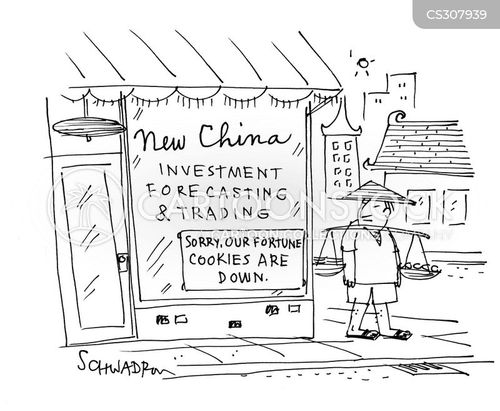 CS307939
New China
INVESTMENT
FORECASTING
& TRADING
SORRY, OUR FORTUNE
COOKIES ARE
DOWN.
CARTOONSTOCK
SCHWADRON